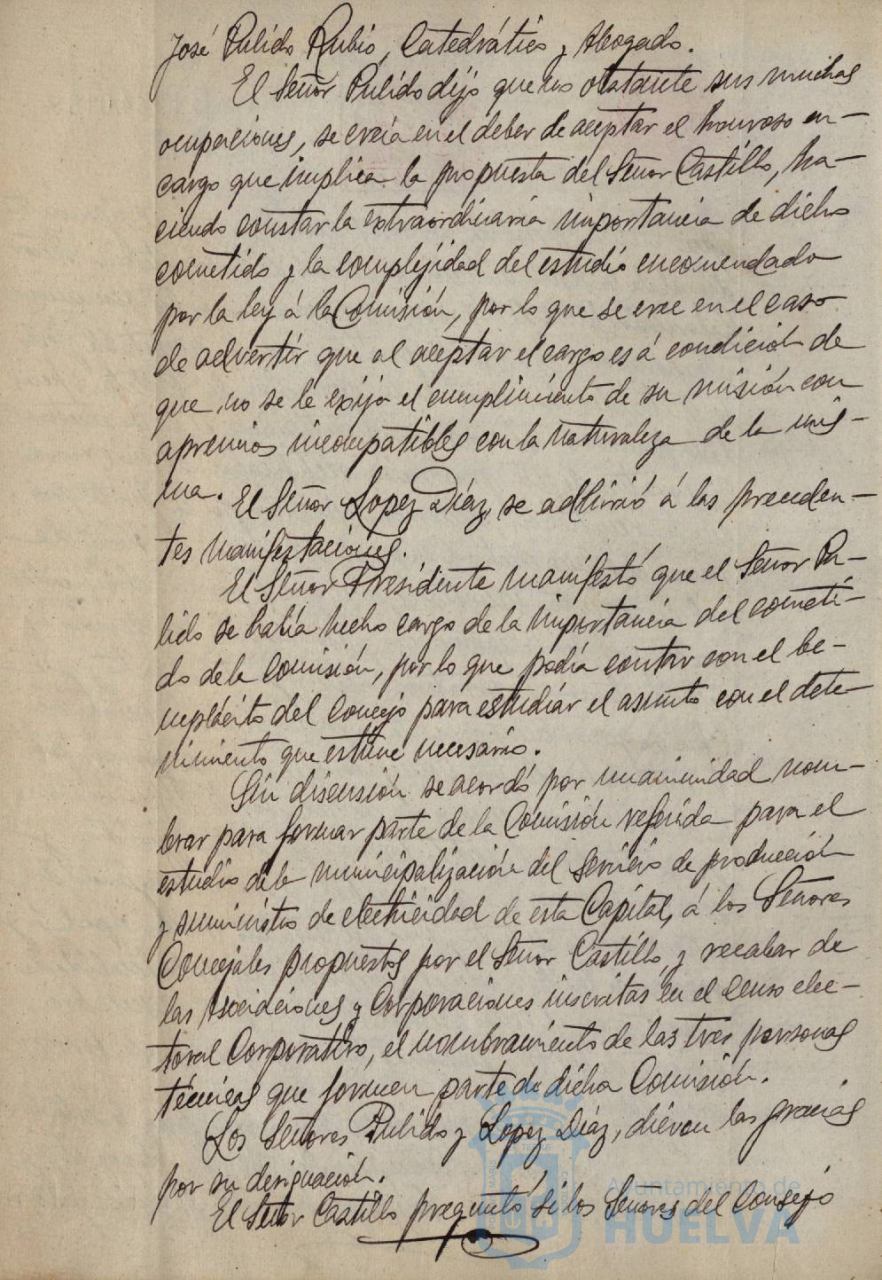 José Pulido Rubio, Catedrático y Abogado.
El Señor Pulido dijo que no obstante sus muchas
ocupaciones, se creía en el deber de aceptar el honroso en-
cargo que implica la propuesta del Señor Castillo, ha-
ciendo constar la extraordinaria importancia de dicho
cometido y la complejidad del estudio encomendado
por la ley á la Comisión, por lo que se cree en el caso
de advertir que al aceptar el cargo es á condición de
que no se le exija el cumplimiento de su misión con
apremios incompatibles con la naturaleza de la mis-
ma. El Señor Lopez Díaz, se adhirió á las preceden-
tes manifestaciones.
El Señor Presidente manifestó que el Señor Pu-
lido se había hecho cargo de la importancia del cometi-
do de la Comisión, por lo que podía contar con el be-
neplácito del Concejo para estudiar el asunto con el dete-
nimiento que estime necesario.
Sin discusión se acordó por unanimidad nom-
brar para formar parte de la Comisión referida para el
estudio de la municipalización del servicio de producción
y suministro de electricidad de esta Capital, á los Señores
Concejales propuestos por el Señor Castillo, y recabar de
las Asociaciones y Corporaciones inscritas en el Censo elec-
toral Corporativo, el nombramiento de las tres personas
técnicas que formen parte de dicha Comisión.
Los Señores Pulido y Lopez Díaz, dieron las gracias
por su designación.
El Señor Castillo preguntó si los Señores del Consejo
Ayuntamiento de
HUELVA